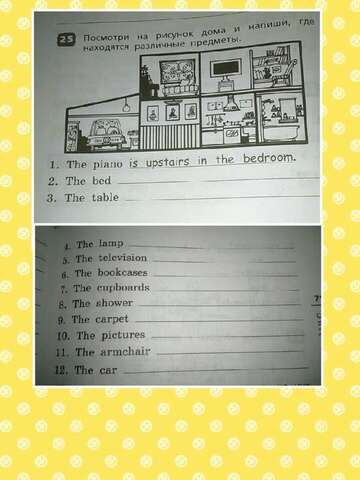 25 Посмотри на рисунок дома и напиши, где
находятся различные предметы.
1. The piano is upstairs in the bedroom.
2. The bed
3. The table
4. The lamp
5. The television
6. The bookcases
7. The cupboards
8. The shower
9. The carpet
10. The pictures
11. The armchair
12. The car